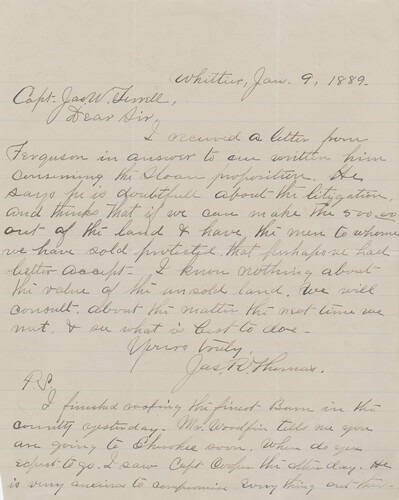 Whittier, Jan. 9, 1889.
Capt. Jas. W. Terrell,
Dear Sir,
I received a letter from
Ferguson in answer to one written him
concerning the Sloan proposition. He
says he is doubtfull about the litigation,
and thinks that if we can make the 500.00
out of the land & have the men to whom
we have sold protected that perhaps we had
better accept. I know nothing about
the value of the unsold land. We will
consult about the matter the next time we
meet, & see what is best to doe -
Yours truly,
Jas. R. Thomas.
P.S.
I finished roofing the finest Barn in the
county yesterday. Mr. Woodfin tells me you
are going to Cherokee soon. When do you
expect to go. I saw Capt Cooper the other day. He
is very anxious to compromise everything out there